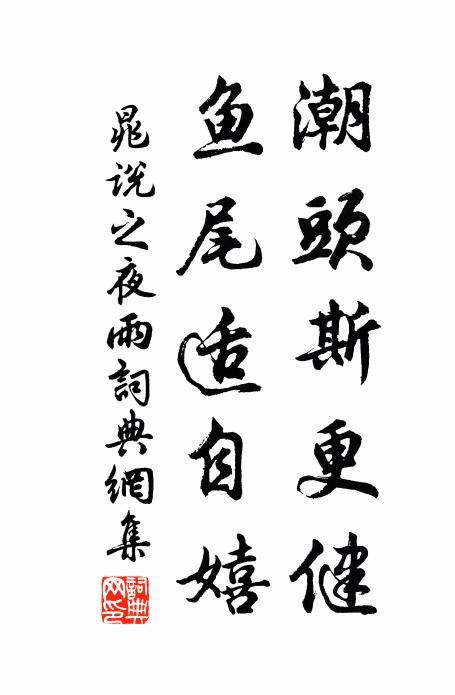 潮頭斯更健
鱼尾适自嬉
晁说之夜雨詞典網集
詞典網印